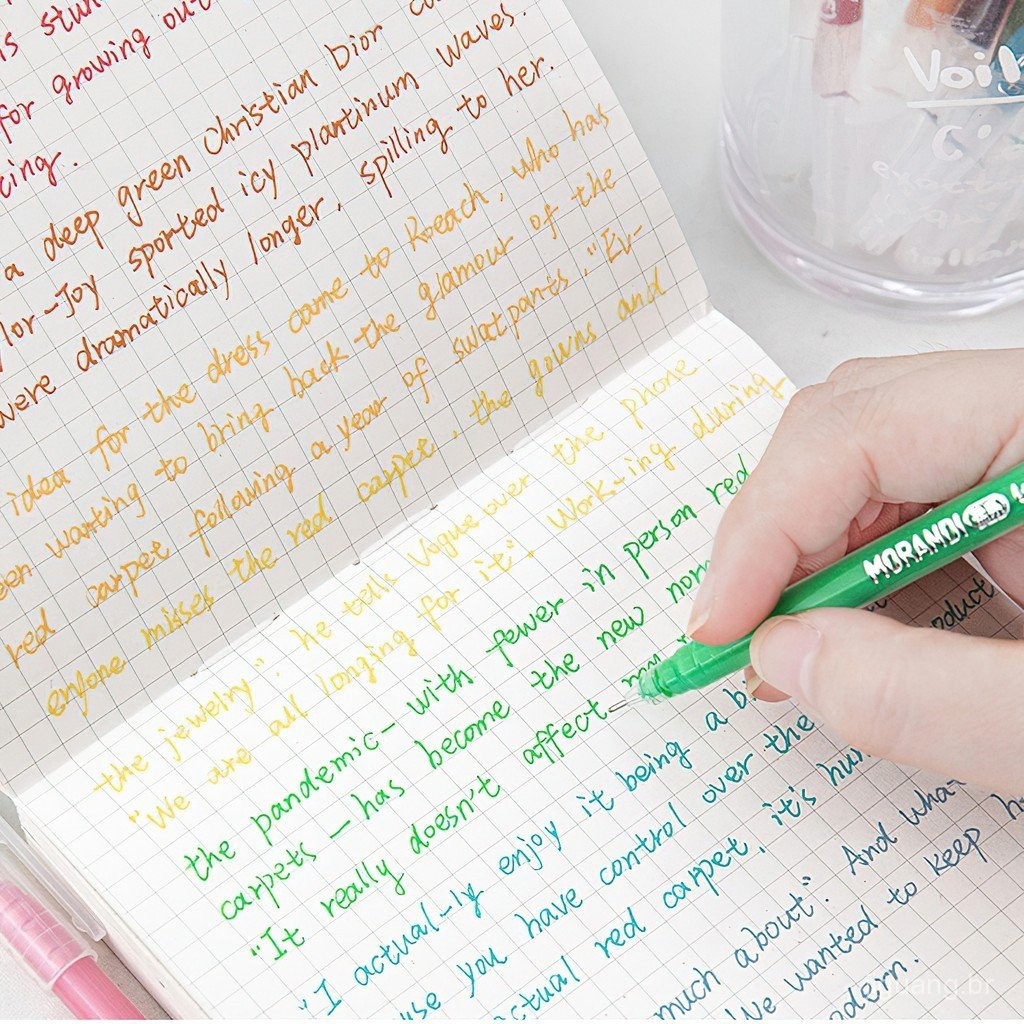 is stun
for growing out
cing.
a deep green Christian Dior co
lor-Joy sported icy plantinum waves.
were dramatically longer, spilling to her.
idea for the dress came to Roeach, who has
een wanting to bring back the glamour of the
red carpet following a year of swaatpants. "Ev-
enyone misses the red carpet, the gowns and
the jewelry", he tells Vogue over the phone
"We are all longing for it". Work-ing during
the pandemic- with fewer in person red
carpets - has become the new norm
"It really doesn't affect my
oduct
"I actual-ly enjoy it being a bi
use you have control over the
actual red carpet, it's hum
much about". And what
We wanted to keep he
odern.
MORANDI
Voil